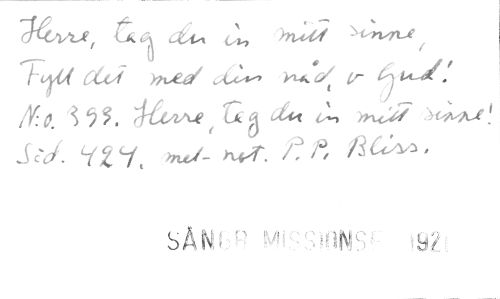 Herre, tag du in mitt sinne,
Fyll det med din nåd, o Gud!
N:o. 393. Herre, tag du in mitt sinne!
Sid. 424. mel-not. P. P. Bliss.
SÅNGR MISSIONSF 192